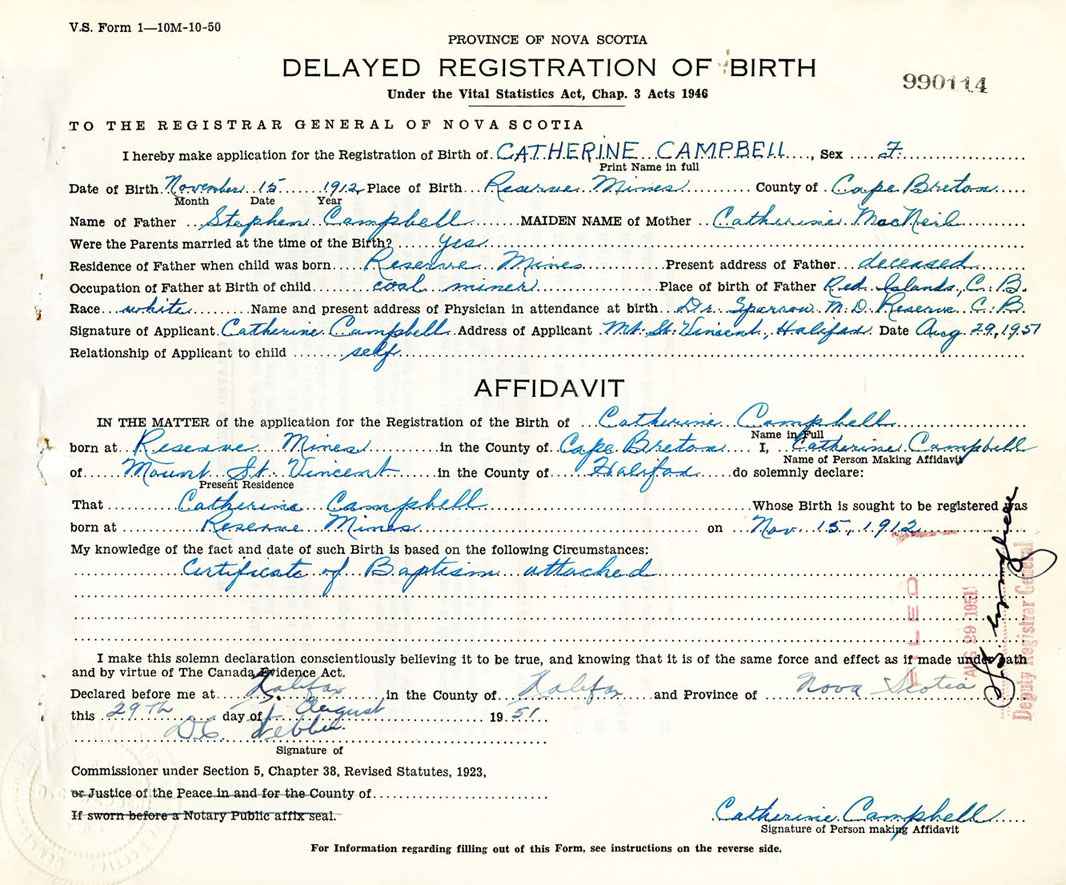 V.S. Form 1—10M-10-50
PROVINCE OF NOVA SCOTIA
DELAYED REGISTRATION OF BIRTH
990114
Under the Vital Statistics Act, Chap. 3 Acts 1946
TO THE REGISTRAR GENERAL OF NOVA SCOTIA
I hereby make application for the Registration of Birth of CATHERINE CAMPBELL, Sex F.
Print Name in full
Date of Birth November 15 1912 Place of Birth Reserve Mines County of Cape Breton
Month Date Year
Name of Father Stephen Campbell MAIDEN NAME of Mother Catherine MacNeil
Were the Parents married at the time of the Birth? yes
Residence of Father when child was born Reserve Mines Present address of Father deceased
Occupation of Father at Birth of child coal miner Place of birth of Father Red Islands, C. B.
Race white Name and present address of Physician in attendance at birth Dr. Sparrow M.D. Reserve C. B.
Signature of Applicant Catherine Campbell Address of Applicant Mt. St. Vincent, Halifax Date Aug. 29, 1951
Relationship of Applicant to child self
AFFIDAVIT
IN THE MATTER of the application for the Registration of the Birth of Catherine Campbell
Name in Full
born at Reserve Mines in the County of Cape Breton I, Catherine Campbell
Name of Person Making Affidavit
of Mount St. Vincent in the County of Halifax do solemnly declare:
Present Residence
That Catherine Campbell Whose Birth is sought to be registered was
born at Reserve Mines on Nov. 15, 1912
My knowledge of the fact and date of such Birth is based on the following Circumstances:
Certificate of Baptism attached
FILED
AUG 29 1951
Deputy Registrar General
I make this solemn declaration conscientiously believing it to be true, and knowing that it is of the same force and effect as if made under oath
and by virtue of The Canada Evidence Act.
Declared before me at Halifax in the County of Halifax and Province of Nova Scotia
this 29th day of August 1951
Signature of
Commissioner under Section 5, Chapter 38, Revised Statutes, 1923,
or Justice of the Peace in and for the County of
If sworn before a Notary Public affix seal.
Catherine Campbell
Signature of Person making Affidavit
For Information regarding filling out of this Form, see instructions on the reverse side.